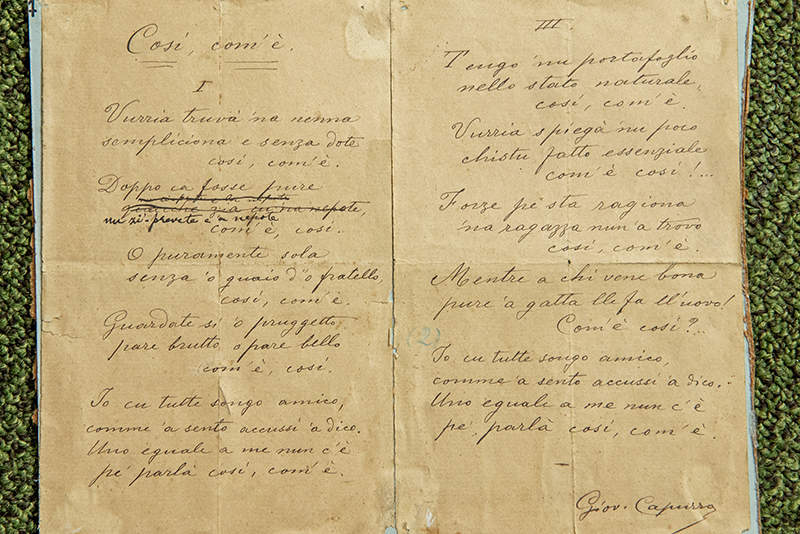 Cosí, com'è.
I
Vurria truvà 'na nenna
sempliciona e senza dote
cosí, com'è.
Doppo ca fosse pure
nu zi'-prevete e 'a nepote
com'è, cosí.
O puramente sola
senza 'o guaio d''o fratello,
cosí, com'è.
Guardate si 'o pruggetto
pare brutto, o pare bello
com'è, cosí.
Io cu tutte songo amico,
comme 'a sento accussí 'a dico.
Uno eguale a me nun c'è
pe' parlà cosí, com'è.
III
Tengo 'nu portafoglio
nello stato naturale,
cosí, com'è.
Vurria spiegà 'nu poco
chistu fatto essenziale
com'è cosí!...
Forze pe' sta ragiona
'na ragazza nun 'a trovo
cosí, com'è.
Mentre a chi vene bona
pure 'a gatta lle fa ll'uovo!
Com'è cosí?...
(2)
Io cu tutte songo amico,
comme 'a sento accussí 'a dico.
Uno eguale a me nun c'è
pe' parlà cosí, com'è.
Giov. Capurro